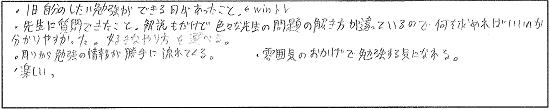 ・1日自分のしたい勉強ができる日があったこと。
・先生に質問できたこと。解説もだけで色々な先生の問題の解き方が違っているので何をどうやればいいのか
分かりやすかった。好きなやり方を選べる。
・周りから勉強の情報が勝手に流れてくる。 ・雰囲気のおかげで勉強する気になれる。
・楽しい。